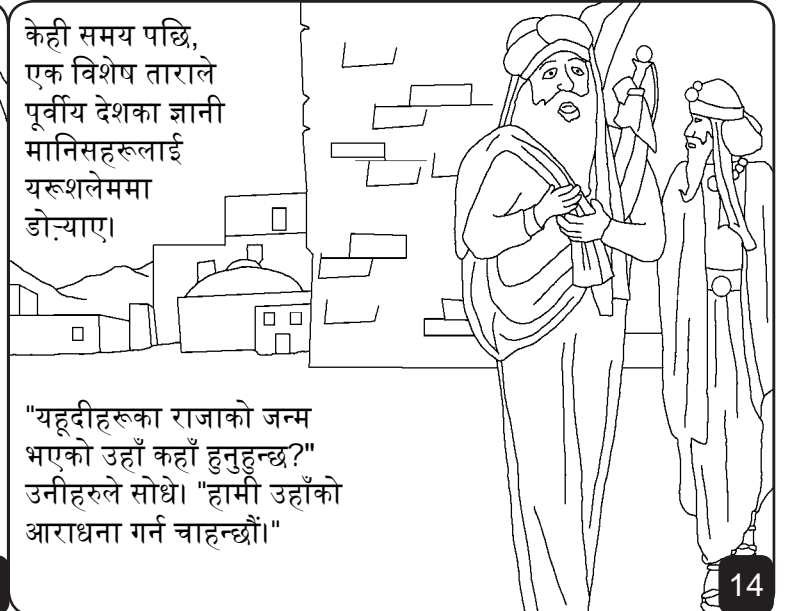 केही समय पछि,
एक विशेष ताराले
पूर्वीय देशका ज्ञानी
मानिसहरूलाई
यरूशलेममा
डोर्‍याए।
"यहूदीहरूका राजाको जन्म
भएको उहाँ कहाँ हुनुहुन्छ?"
उनीहरुले सोधे। "हामी उहाँको
आराधना गर्न चाहन्छौं।"
14